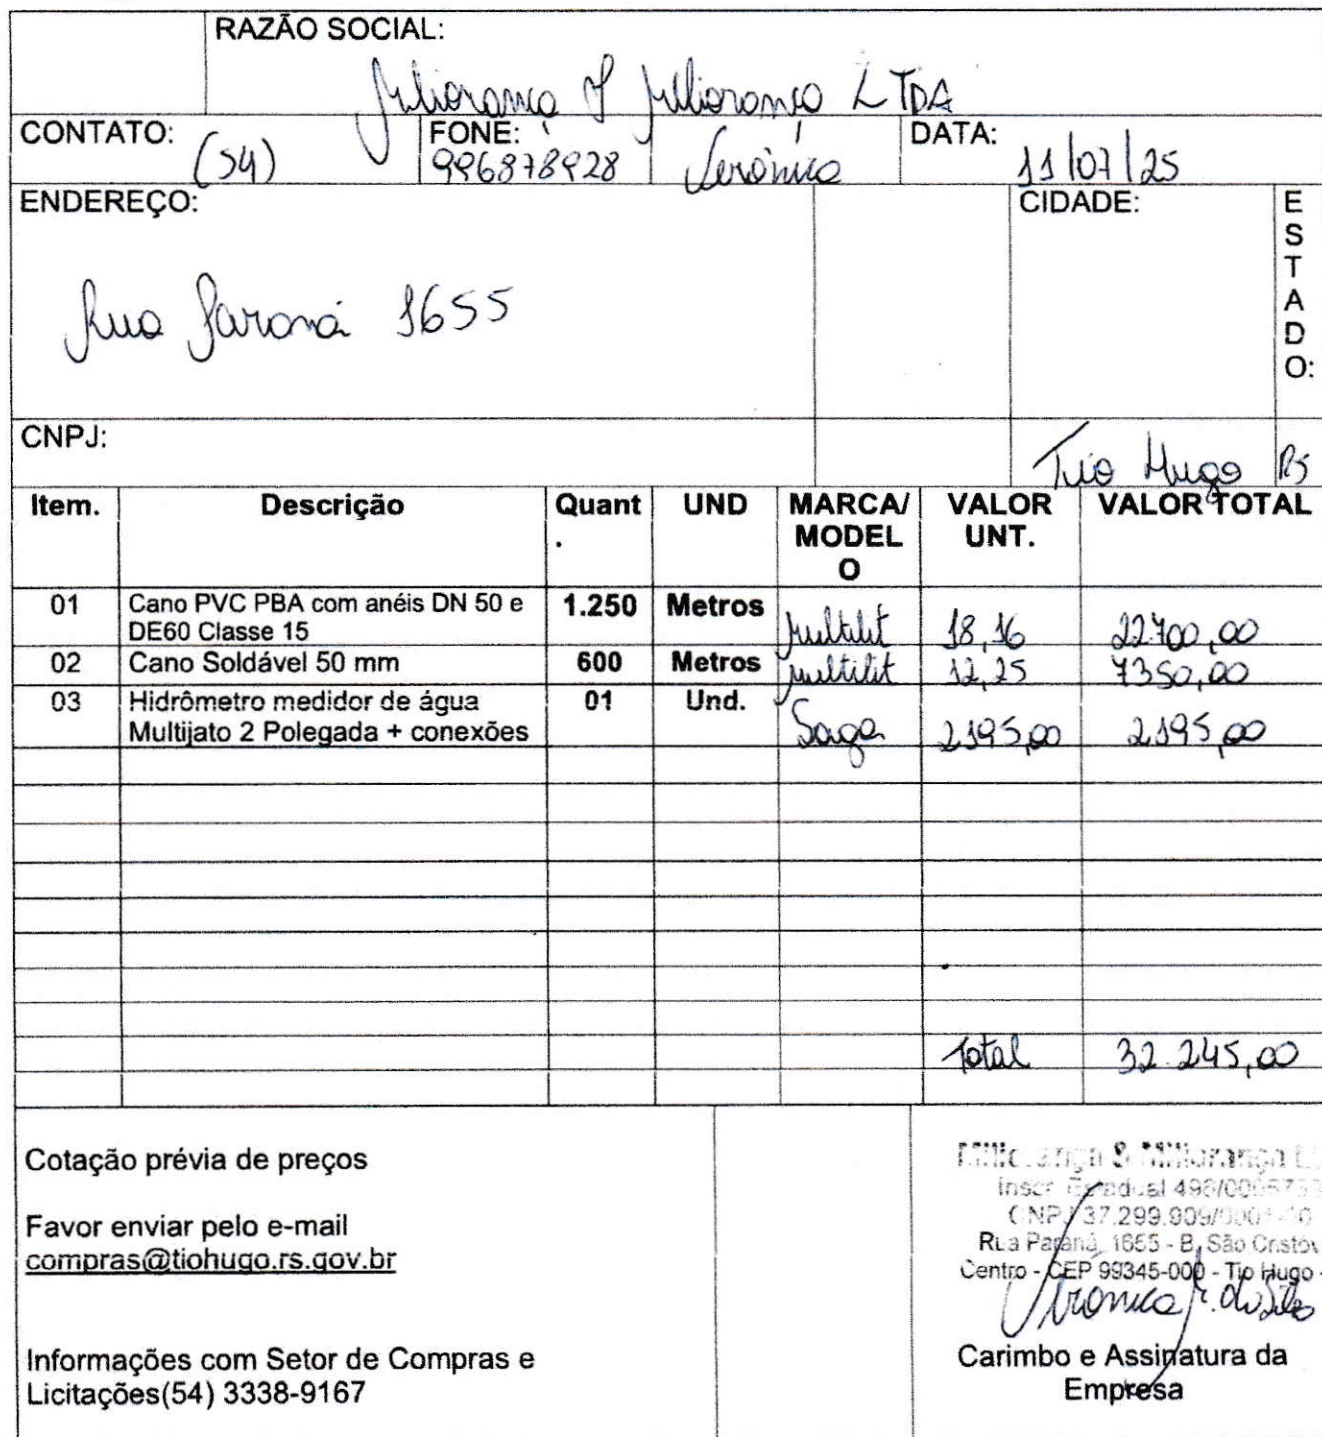 RAZÃO SOCIAL:
Miliorança & Miliorança LTDA
CONTATO: (54) FONE: 996878928 Verônica DATA: 11/07/25
ENDEREÇO: CIDADE: ESTADO:
Rua Paraná 1655
CNPJ: Tio Hugo RS
Item. Descrição Quant. UND MARCA/MODELO VALOR UNT. VALOR TOTAL
01 Cano PVC PBA com anéis DN 50 e DE60 Classe 15 1.250 Metros Multilit 18,16 22.700,00
02 Cano Soldável 50 mm 600 Metros multilit 12,25 7350,00
03 Hidrômetro medidor de água Multijato 2 Polegada + conexões 01 Und. Saga 2195,00 2195,00
Total 32.245,00
Cotação prévia de preços
Favor enviar pelo e-mail
compras@tiohugo.rs.gov.br
Informações com Setor de Compras e
Licitações(54) 3338-9167
Miliorança & Miliorança
Inscr. Estadual
CNPJ 37.299.909/
Rua Paraná, 1655 - B. São Cristóv
Centro - CEP 99345-000 - Tio Hugo -
Carimbo e Assinatura da
Empresa